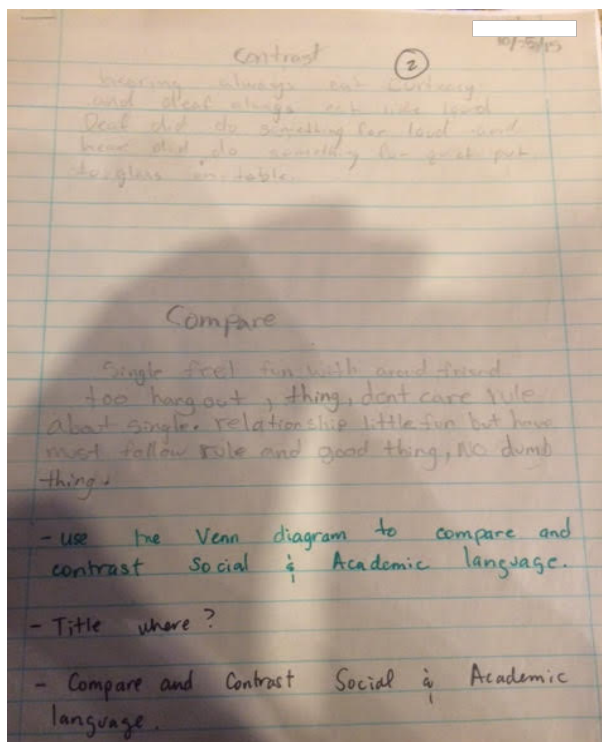 10/5/15
Contrast
2
hearing always eat
and deaf always eat like loud
Deaf did do something for loud and
hear did do something for put
glass on table.
Compare
Single feel fun with around friend
too hang out, thing, dont care rule
about single. relationship little fun but have
must follow rule and good thing, No dumb
thing.
- use the Venn diagram to compare and
contrast Social & Academic language.
- Title where?
- Compare and Contrast Social & Academic
language.